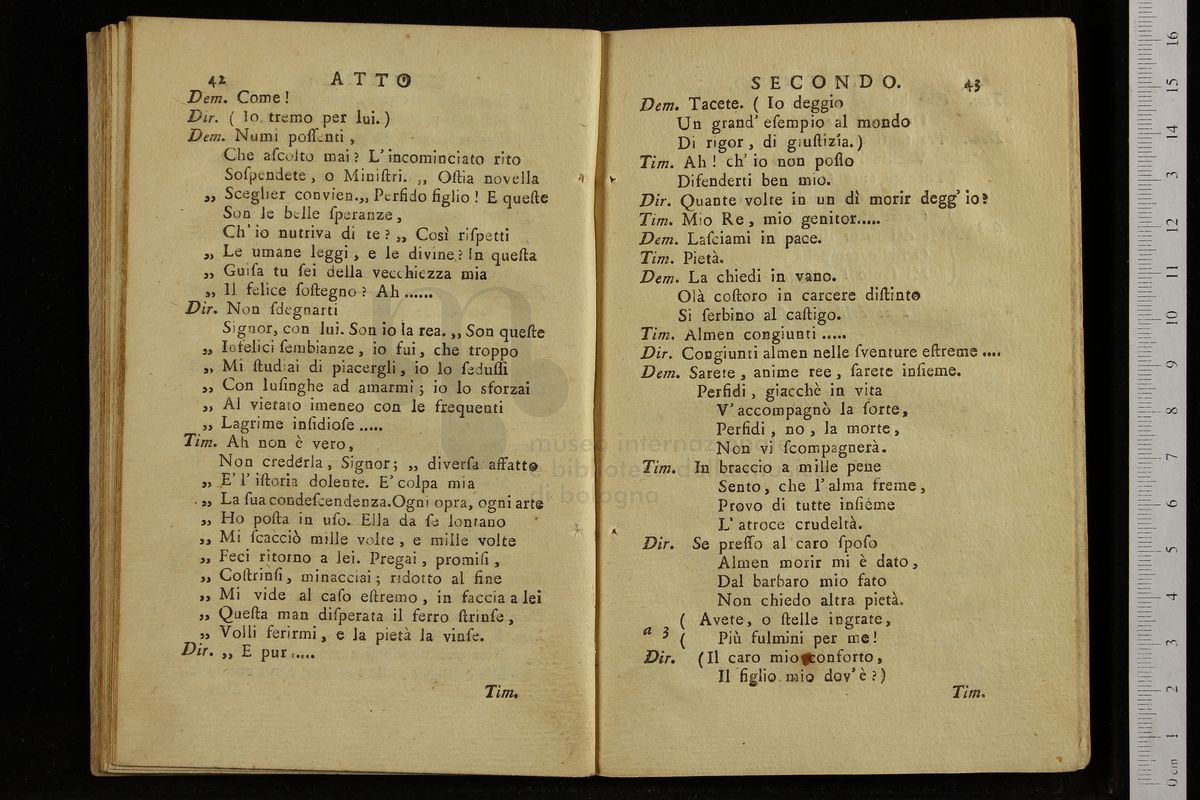 42 ATTO
Dem. Come!
Dir. ( Io tremo per lui. )
Dem. Numi poſſenti ,
Che aſcolto mai? L'incominciato rito
Soſpendete , o Miniſtri. ,, Oſtia novella
,, Sceglier convien.,, Perfido figlio! E queſte
Son le belle ſperanze ,
Ch'io nutriva di te? ,, Così riſpetti
,, Le umane leggi , e le divine? In queſta
,, Guiſa tu ſei della vecchiezza mia
,, Il felice ſoſtegno? Ah ......
Dir. Non ſdegnarti
Signor, con lui. Son io la rea. ,, Son queſte
,, Infelici ſembianze , io fui, che troppo
,, Mi ſtudiai di piacergli, io lo ſeduſſi
,, Con luſinghe ad amarmi ; io lo sforzai
,, Al vietato imeneo con le frequenti
,, Lagrime inſidioſe .....
Tim. Ah non è vero,
Non crederla, Signor; ,, diverſa affatto
,, E' l'iſtoria dolente. E' colpa mia
,, La ſua condeſcendenza. Ogni opra, ogni arte
,, Ho poſta in uſo. Ella da ſe lontano
,, Mi ſcacciò mille volte , e mille volte
,, Feci ritorno a lei. Pregai, promiſi ,
,, Coſtrinſi, minacciai ; ridotto al fine
,, Mi vide al caſo eſtremo , in faccia a lei
,, Queſta man diſperata il ferro ſtrinſe ,
,, Volli ferirmi, e la pietà la vinſe.
Dir. ,, E pur .....
Tim.
SECONDO. 43
Dem. Tacete. ( Io deggio
Un grand' eſempio al mondo
Di rigor , di giuſtizia. )
Tim. Ah ! ch' io non poſſo
Difenderti ben mio.
Dir. Quante volte in un dì morir degg' io?
Tim. Mio Re , mio genitor.....
Dem. Laſciami in pace.
Tim. Pietà.
Dem. La chiedi in vano.
Olà coſtoro in carcere diſtinto
Si ſerbino al caſtigo.
Tim. Almen congiunti .....
Dir. Congiunti almen nelle ſventure eſtreme ....
Dem. Sarete , anime ree , ſarete inſieme.
Perfidi , giacchè in vita
V' accompagnò la ſorte,
Perfidi , no , la morte ,
Non vi ſcompagnerà.
Tim. In braccio a mille pene
Sento, che l'alma freme ,
Provo di tutte inſiéme
L' atroce crudeltà.
Dir. Se preſſo al caro ſpoſo
Almen morir mi è dato ,
Dal barbaro mio fato
Non chiedo altra pietà.
a 3 ( Avete, o ſtelle ingrate,
( Più fulmini per me!
Dir. (Il caro mio conforto ,
Il figlio mio dov'è ?)
Tim.
museo internazionale
e biblioteca della
di bologna
0 cm 1 2 3 4 5 6 7 8 9 10 11 12 13 14 15 16